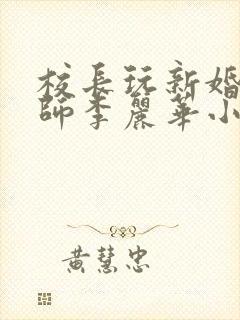 校長玩新婚
師李麗華小
黃慧忠